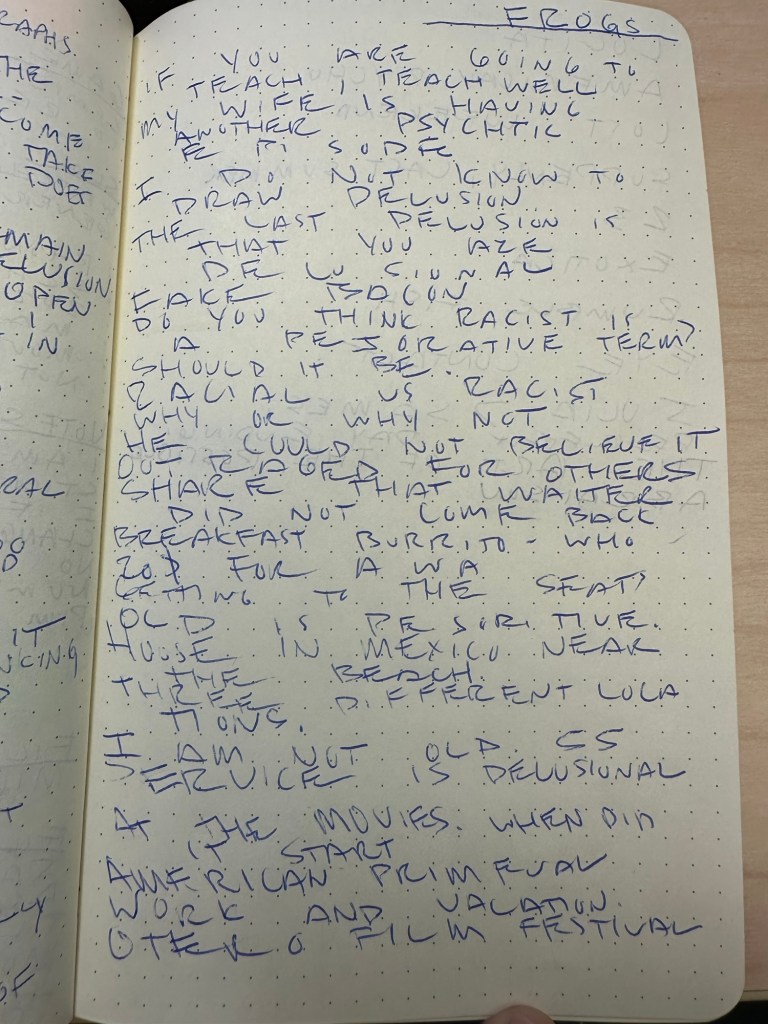 RAPHS.
THE
COME
TAKE
DOES
MAIN
ELUSION
OPEN
I
IN
RAL
IT
NCING
LY
OF
FROGS
IF YOU ARE GOING TO
TEACH, TEACH WELL
MY WIFE IS HAVING
ANOTHER PSYCHTIC
E PI SODE
I DO NOT KNOW TO
DRAW DELUSION
THE LAST DELUSION IS
THAT YOU ARE
DE LU SIONAL
FAKE BACON
DO YOU THINK RACIST IS
A PEJORATIVE TERM?
SHOULD IT BE.
RACIAL VS RACIST
WHY OR WHY NOT
HE COULD NOT BELIEVE IT
OUTRAGED FOR OTHERS
SHARE THAT WAITER
DID NOT COME BACK
BREAKFAST BURRITO - WHO
FOR A WA
TO THE SEAT?
OLD IS
HOUSE IN MEXICO NEAR
THE BEACH.
THREE DIFFERENT LOCA
TIONS.
I AM NOT OLD 55
SERVICE IS DELUSIONAL
A THE MOVIES. WHEN DID
IT START
AMERICAN PRIMEVAL
WORK AND VACATION.
OTERO FILM FESTIVAL